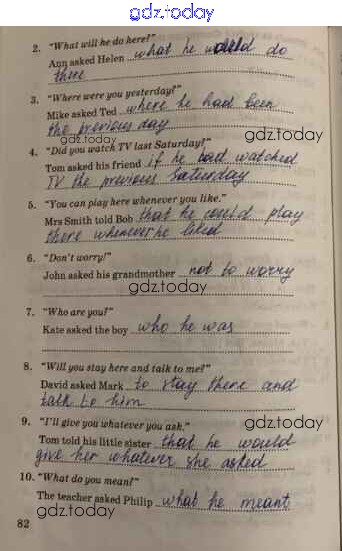 gdz.today
2. "What will he do here?"
Ann asked Helen what he would do
there
3. "Where were you yesterday?"
Mike asked Ted where he had been
the previous day
gdz.today
4. "Did you watch TV last Saturday?"
gdz.today
Tom asked his friend if he had watched
TV the previous Saturday
5. "You can play here whenever you like."
Mrs Smith told Bob that he could play
there whenever he liked
6. "Don't worry!"
John asked his grandmother not to worry
gdz.today
7. "Who are you?"
Kate asked the boy who he was
8. "Will you stay here and talk to me?"
David asked Mark to stay there and
talk to him
gdz.today
9. "I'll give you whatever you ask."
Tom told his little sister that he would
give her whatever she asked
10. "What do you mean?"
The teacher asked Philip what he meant
gdz.today
82